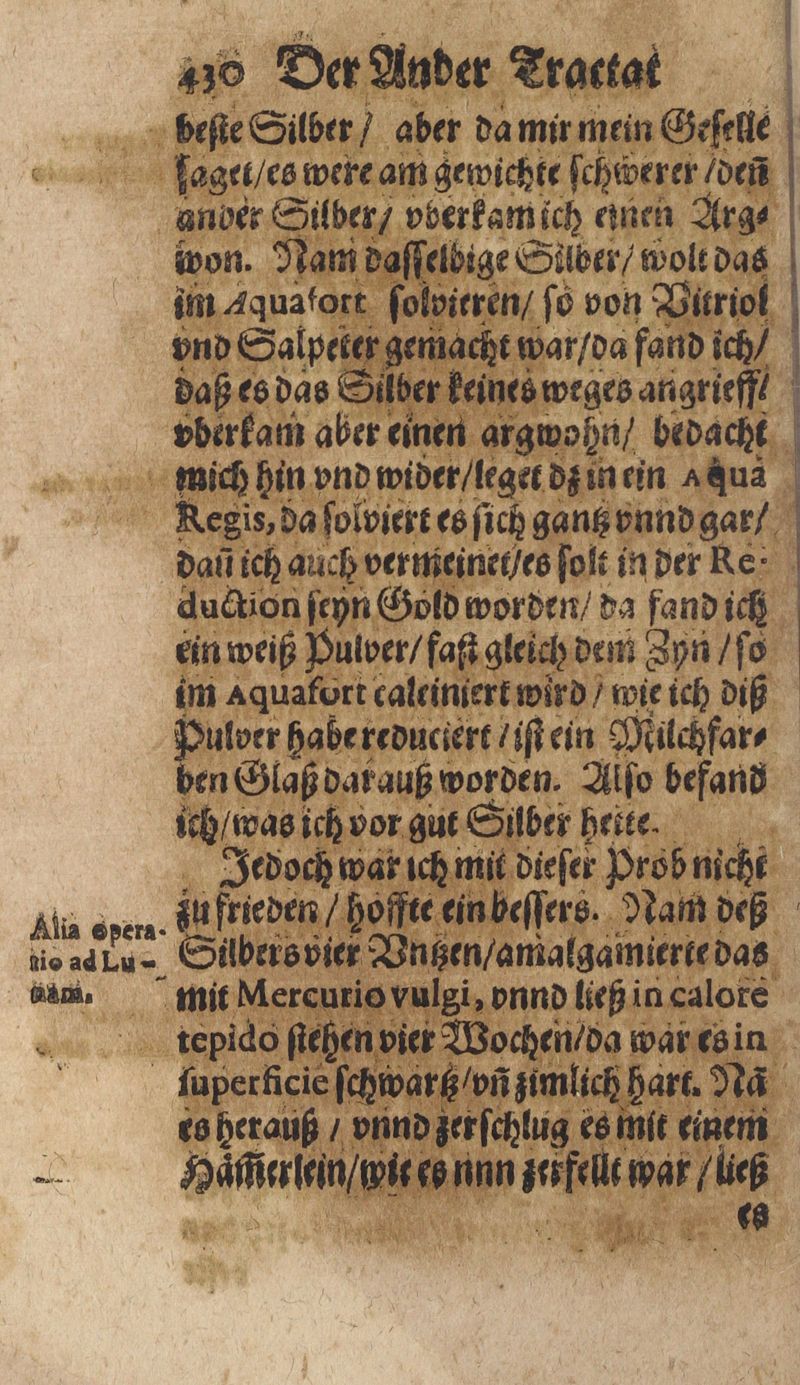 430 Der Ander Tractat
beſte Silber / aber da mir mein Geſelle
ſaget/es were am gewichte ſchwerer /deñ
ander Silber/ vberkam ich einen Arg⸗
won. Nam daſſelbige Silber/ wolt das
im Aquafort ſolvieren/ ſo von Vitriol
vnd Salpeter gemacht war/da fand ich/
daß es das Silber keines weges angrieff/
vberkam aber einen argwohn/ bedacht
mich hin vnd wider/leget dz in ein Aqua
Regis, da ſolviert es ſich gantz vnnd gar/
dañ ich auch vermeinet/es ſolt in der Re-
duction ſeyn Gold worden/ da fand ich
ein weiß Pulver/ faſt gleich dem Zyn /ſo
im Aquafort calciniert wird / wie ich diß
Pulver habe reduciert / iſt ein Milchfar⸗
ben Glaß darauß worden. Alſo befand
ich/was ich vor gut Silber hette.
Jedoch war ich mit dieſer Prob nicht
zu frieden / hoffte ein beſſers. Nam deß
Alia opera-
tio ad Lu-
nam.
Silbers vier Vntzen/amalgamierte das
mit Mercurio vulgi, vnnd ließ in calore
tepido ſtehen vier Wochen/da war es in
ſuperficie ſchwartz/vñ zimlich hart. Nã
es herauß / vnnd zerſchlug es mit einem
Häm̃erlein/wie es nun zerfellt war / ließ
es